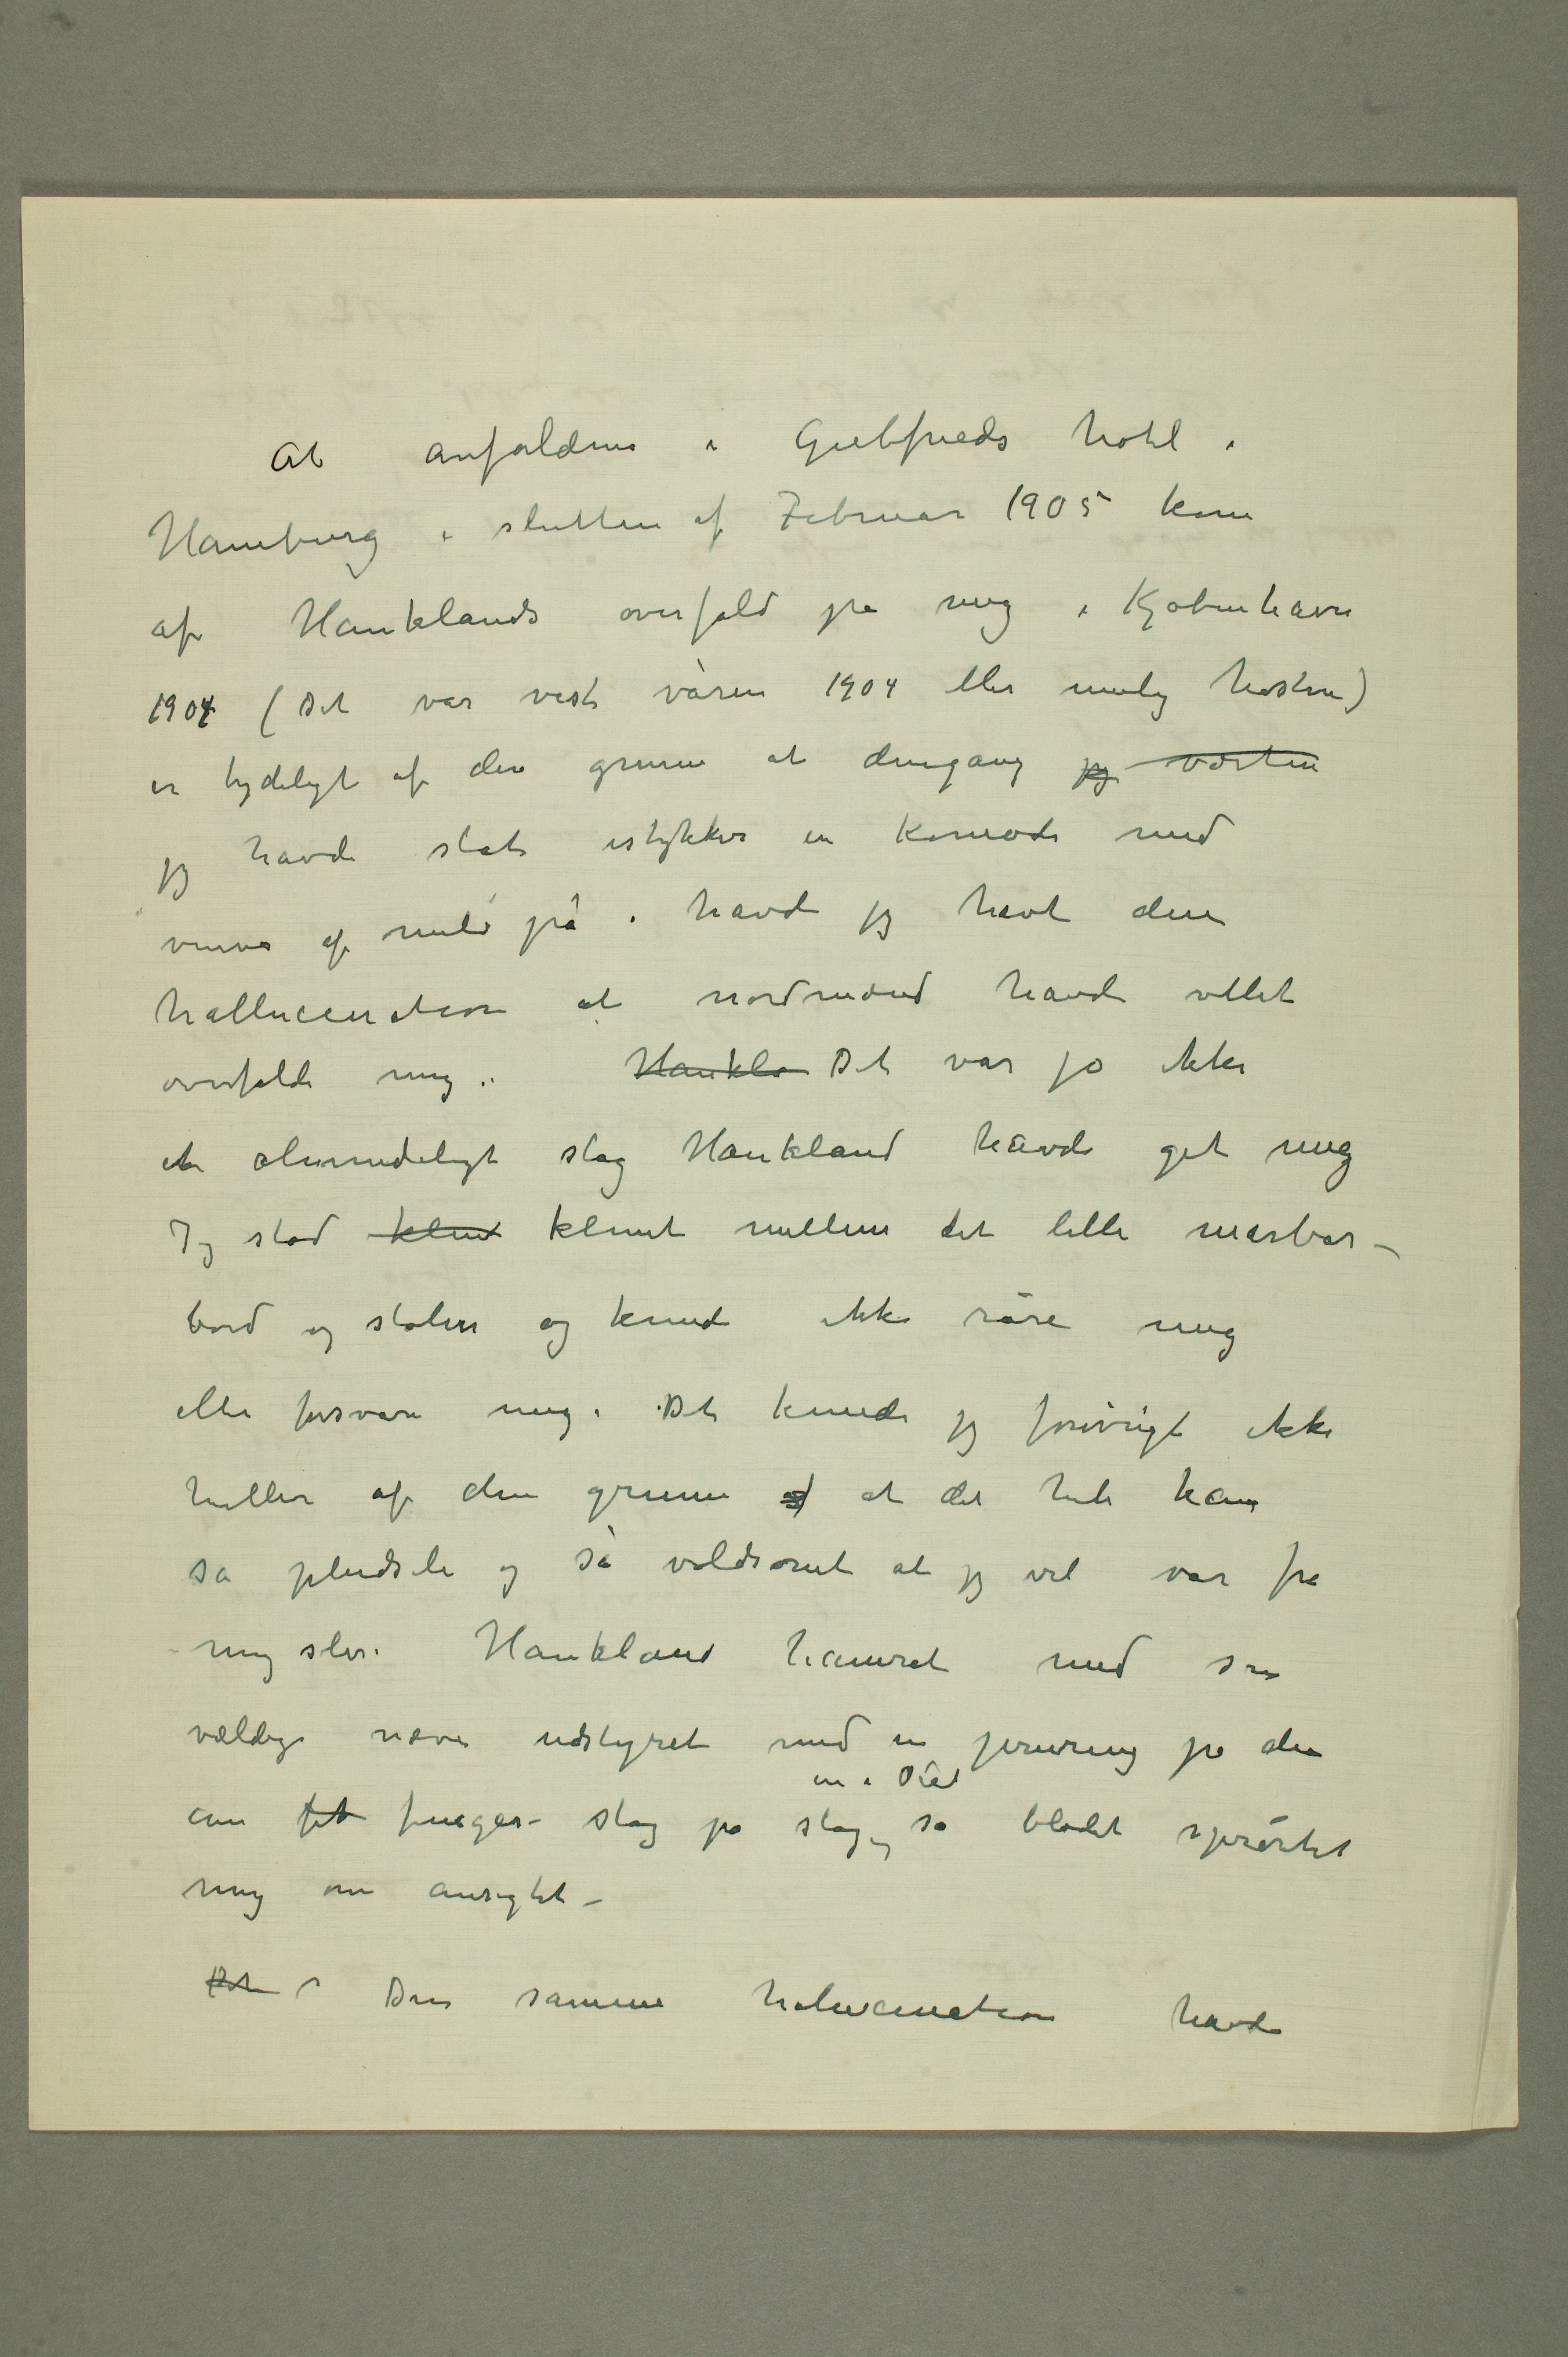 At anfaldene i Giebfrieds hotel i
Hamburg i slutten af Februar 1905 kom
af Hauklands overfald på mig i Kjøbenhavn
1904 (Det var vist våren 1904 eller mulig høsten)
er tydeligt af den grunn at dengang jeg værten
jeg havde slåt istykker en komode med
venus af milo på. havde jeg havt den
hallucination at nordmænd havde villet
overfalde mig.. Haukla Det var jo ikke
et almindeligt slag Haukland havde get mig
Jeg stod klemt klemt mellem det lille marbor–
bord og stolen og kunde ikke røre mig
eller forsvare mig. Det kunde jeg forøvrigt ikke
heller af den grunn at det hele kom
så pludseli og så voldsomt at jeg vel var fra
mig selv. Haukland hamret med sin
vældige næve udstyret med en jernring på den
ene finger– slag på slag, så blodet sprøitet
en i Død
mig om ansigtet –
Det Den samme halucination havde